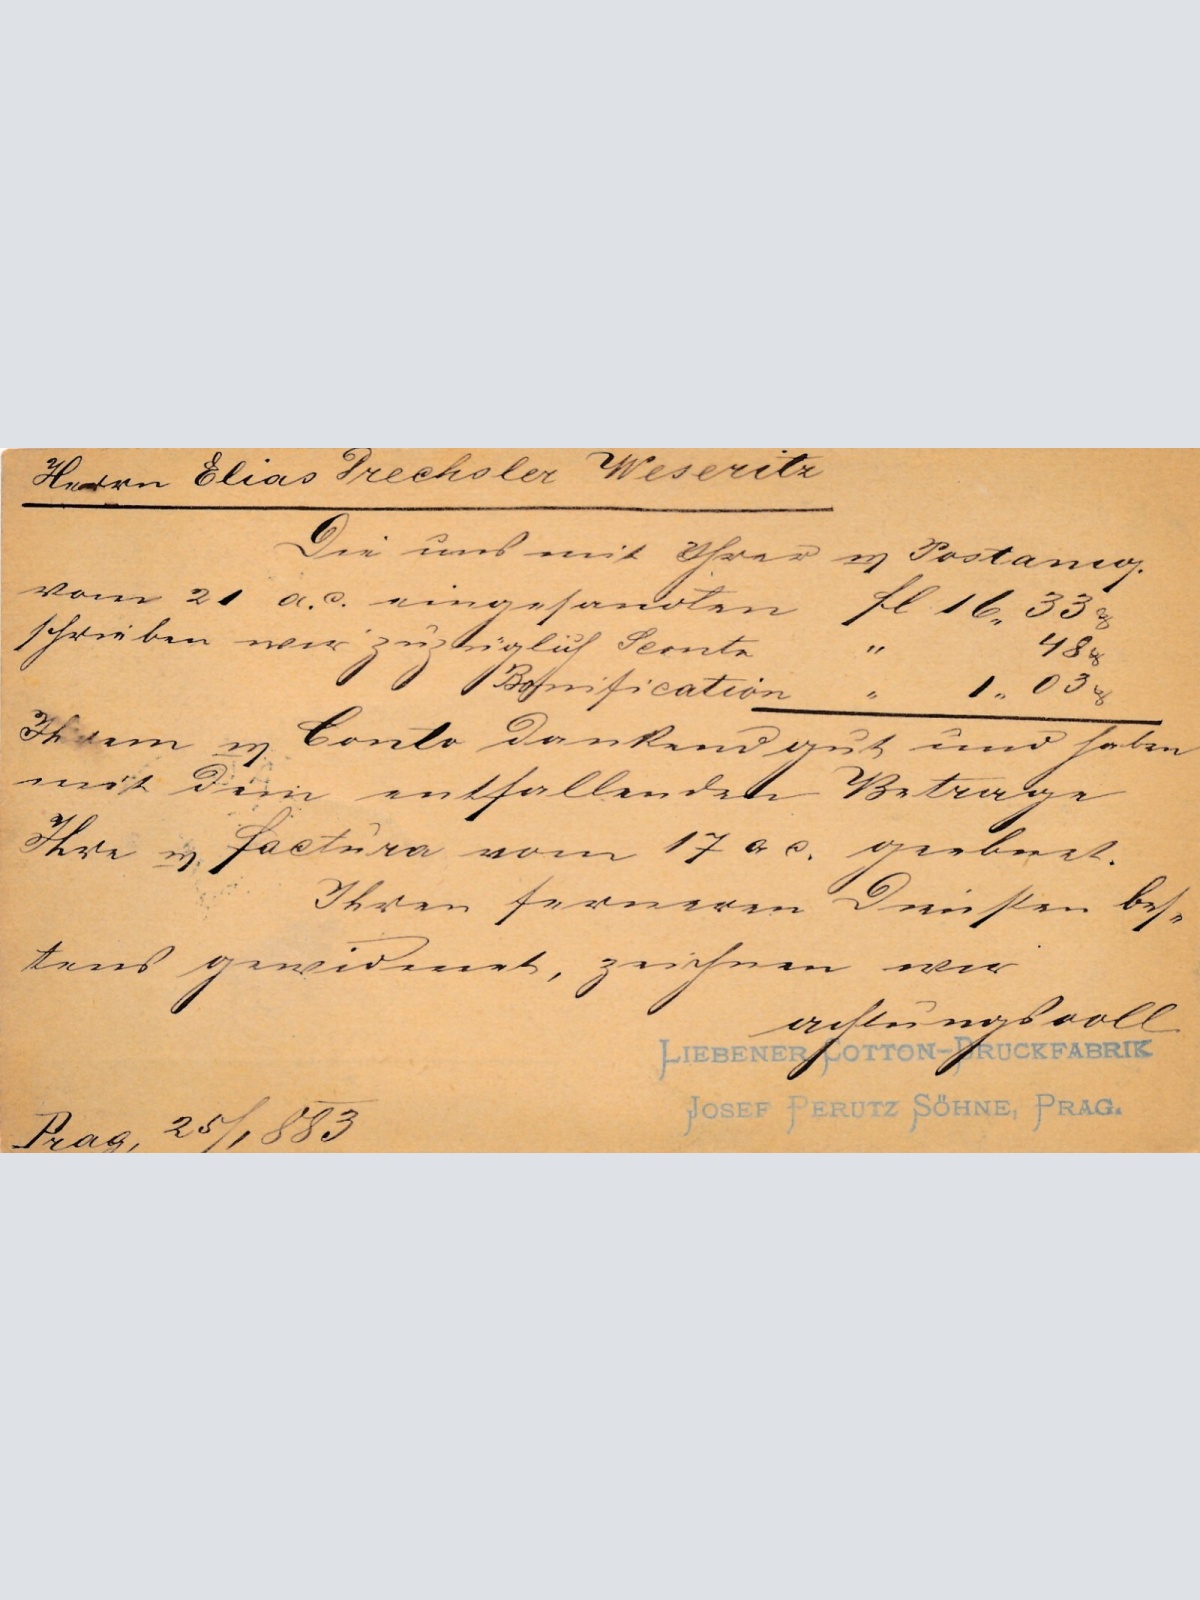 Herrn Elias Drechsler Weseritz
Die uns mit Ihrer w Postanwg.
vom 21 a.c. eingesandten fl 16.. 33
schrieben wir zuzüglich Sconto " 48
Bonification " 1.. 03
Ihrem w Conto dankend gut und haben
mit dem entfallenden Betrage
Ihre w. Factura vom 17 a c. geebnet.
Ihren ferneren Diensten bes-
tens gewidmet, zeichnen wir
achtungsvoll
LIEBENER COTTON-DRUCKFABRIK
JOSEF PERUTZ SÖHNE, PRAG.
Prag, 25/1 883